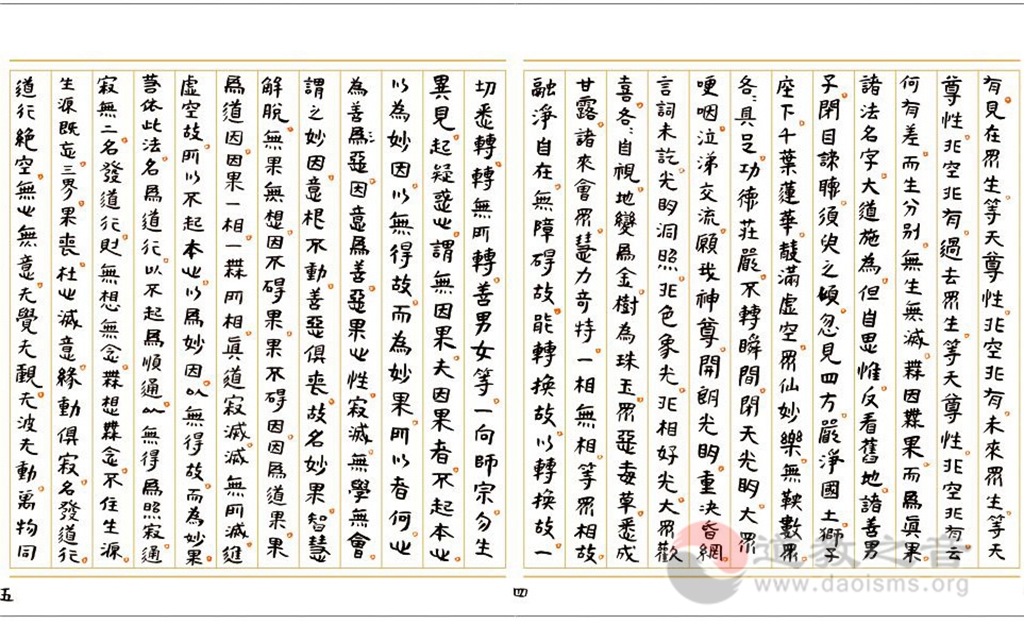 有見在眾生等天尊性非空非有未來眾生等天
尊性非空非有過去眾生等天尊性非空非有云
何有差而生分别無生無滅無因無果而為真果
諸法名字大道施為但自思惟反看舊地諸善男
子閉目諦聽須臾之傾忽見四方嚴淨國土獅子
座下千葉蓮華馥滿虛空眾仙妙樂無鞅數眾
各各具足功德莊嚴不轉瞬間閉天光明大眾
哽咽泣涕交流願我神尊開朗光明重決昏網
言詞未訖光明洞照非色象光非相好光大眾歡
喜各各自視地變為金樹為珠玉眾惡毒草悉成
甘露諸來會眾慧力奇持一相無相等眾相故
融淨自在無障碍故能轉換故以轉換故一
四
切悉轉轉無所轉善男女等一向師宗勿生
異見起疑惑心謂無因果夫因果者不起本心
以為妙因以無得故而為妙果所以者何心
為善為惡因意為善惡果心性寂滅無學無會
謂之妙因意根不動善惡俱喪故名妙果智慧
解脫無果無想因不碍果果不碍因因為道果果
為道因因果一相一無所相真道寂滅滅無所滅進
虛空故所以不起本心以為妙因以無得故而為妙果
等依此法名為道行以不起為順通以無得為照寂通
寂無二名發道行財無想無念無想無念不住生源
生源既忘三界果喪杜心滅意緣動俱寂名發道行
道行絕空無心無意无覺无觀无波无動萬物同
五
道教之音
www.daoisms.org